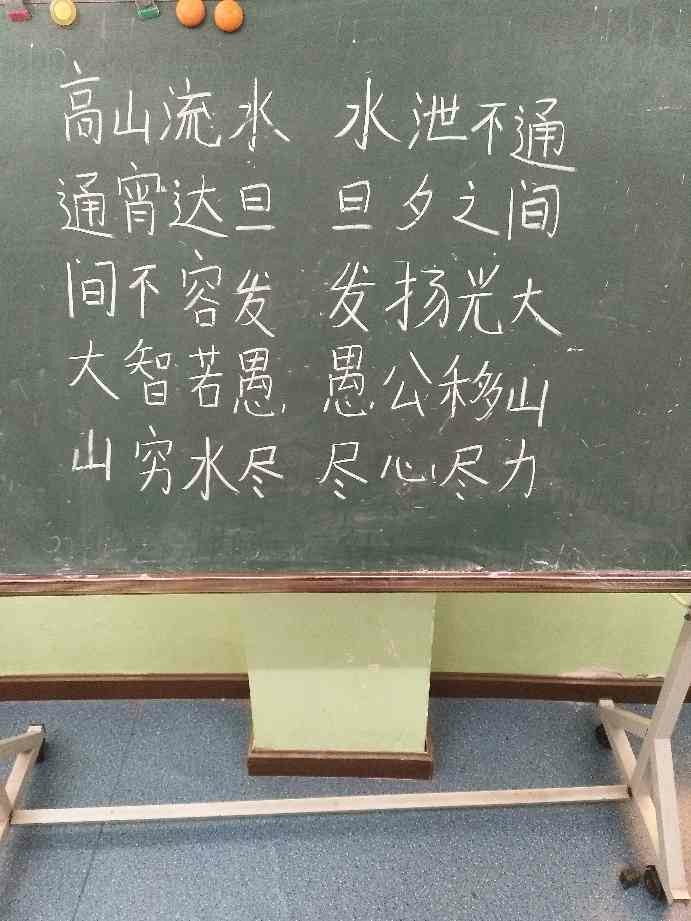 高山流水 水泄不通
通宵达旦 旦夕之间
间不容发 发扬光大
大智若愚 愚公移山
山穷水尽 尽心尽力